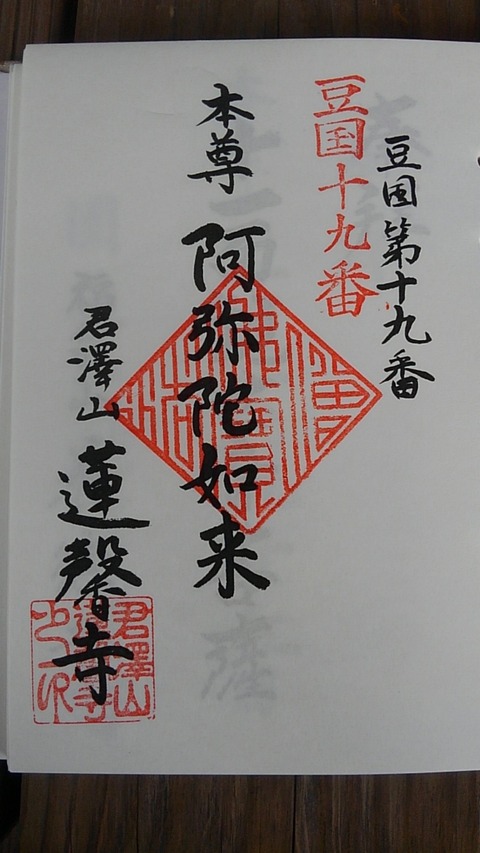 豆国第十九番
豆国十九番
本尊 阿弥陀如来
君澤山 蓮馨寺
君澤山